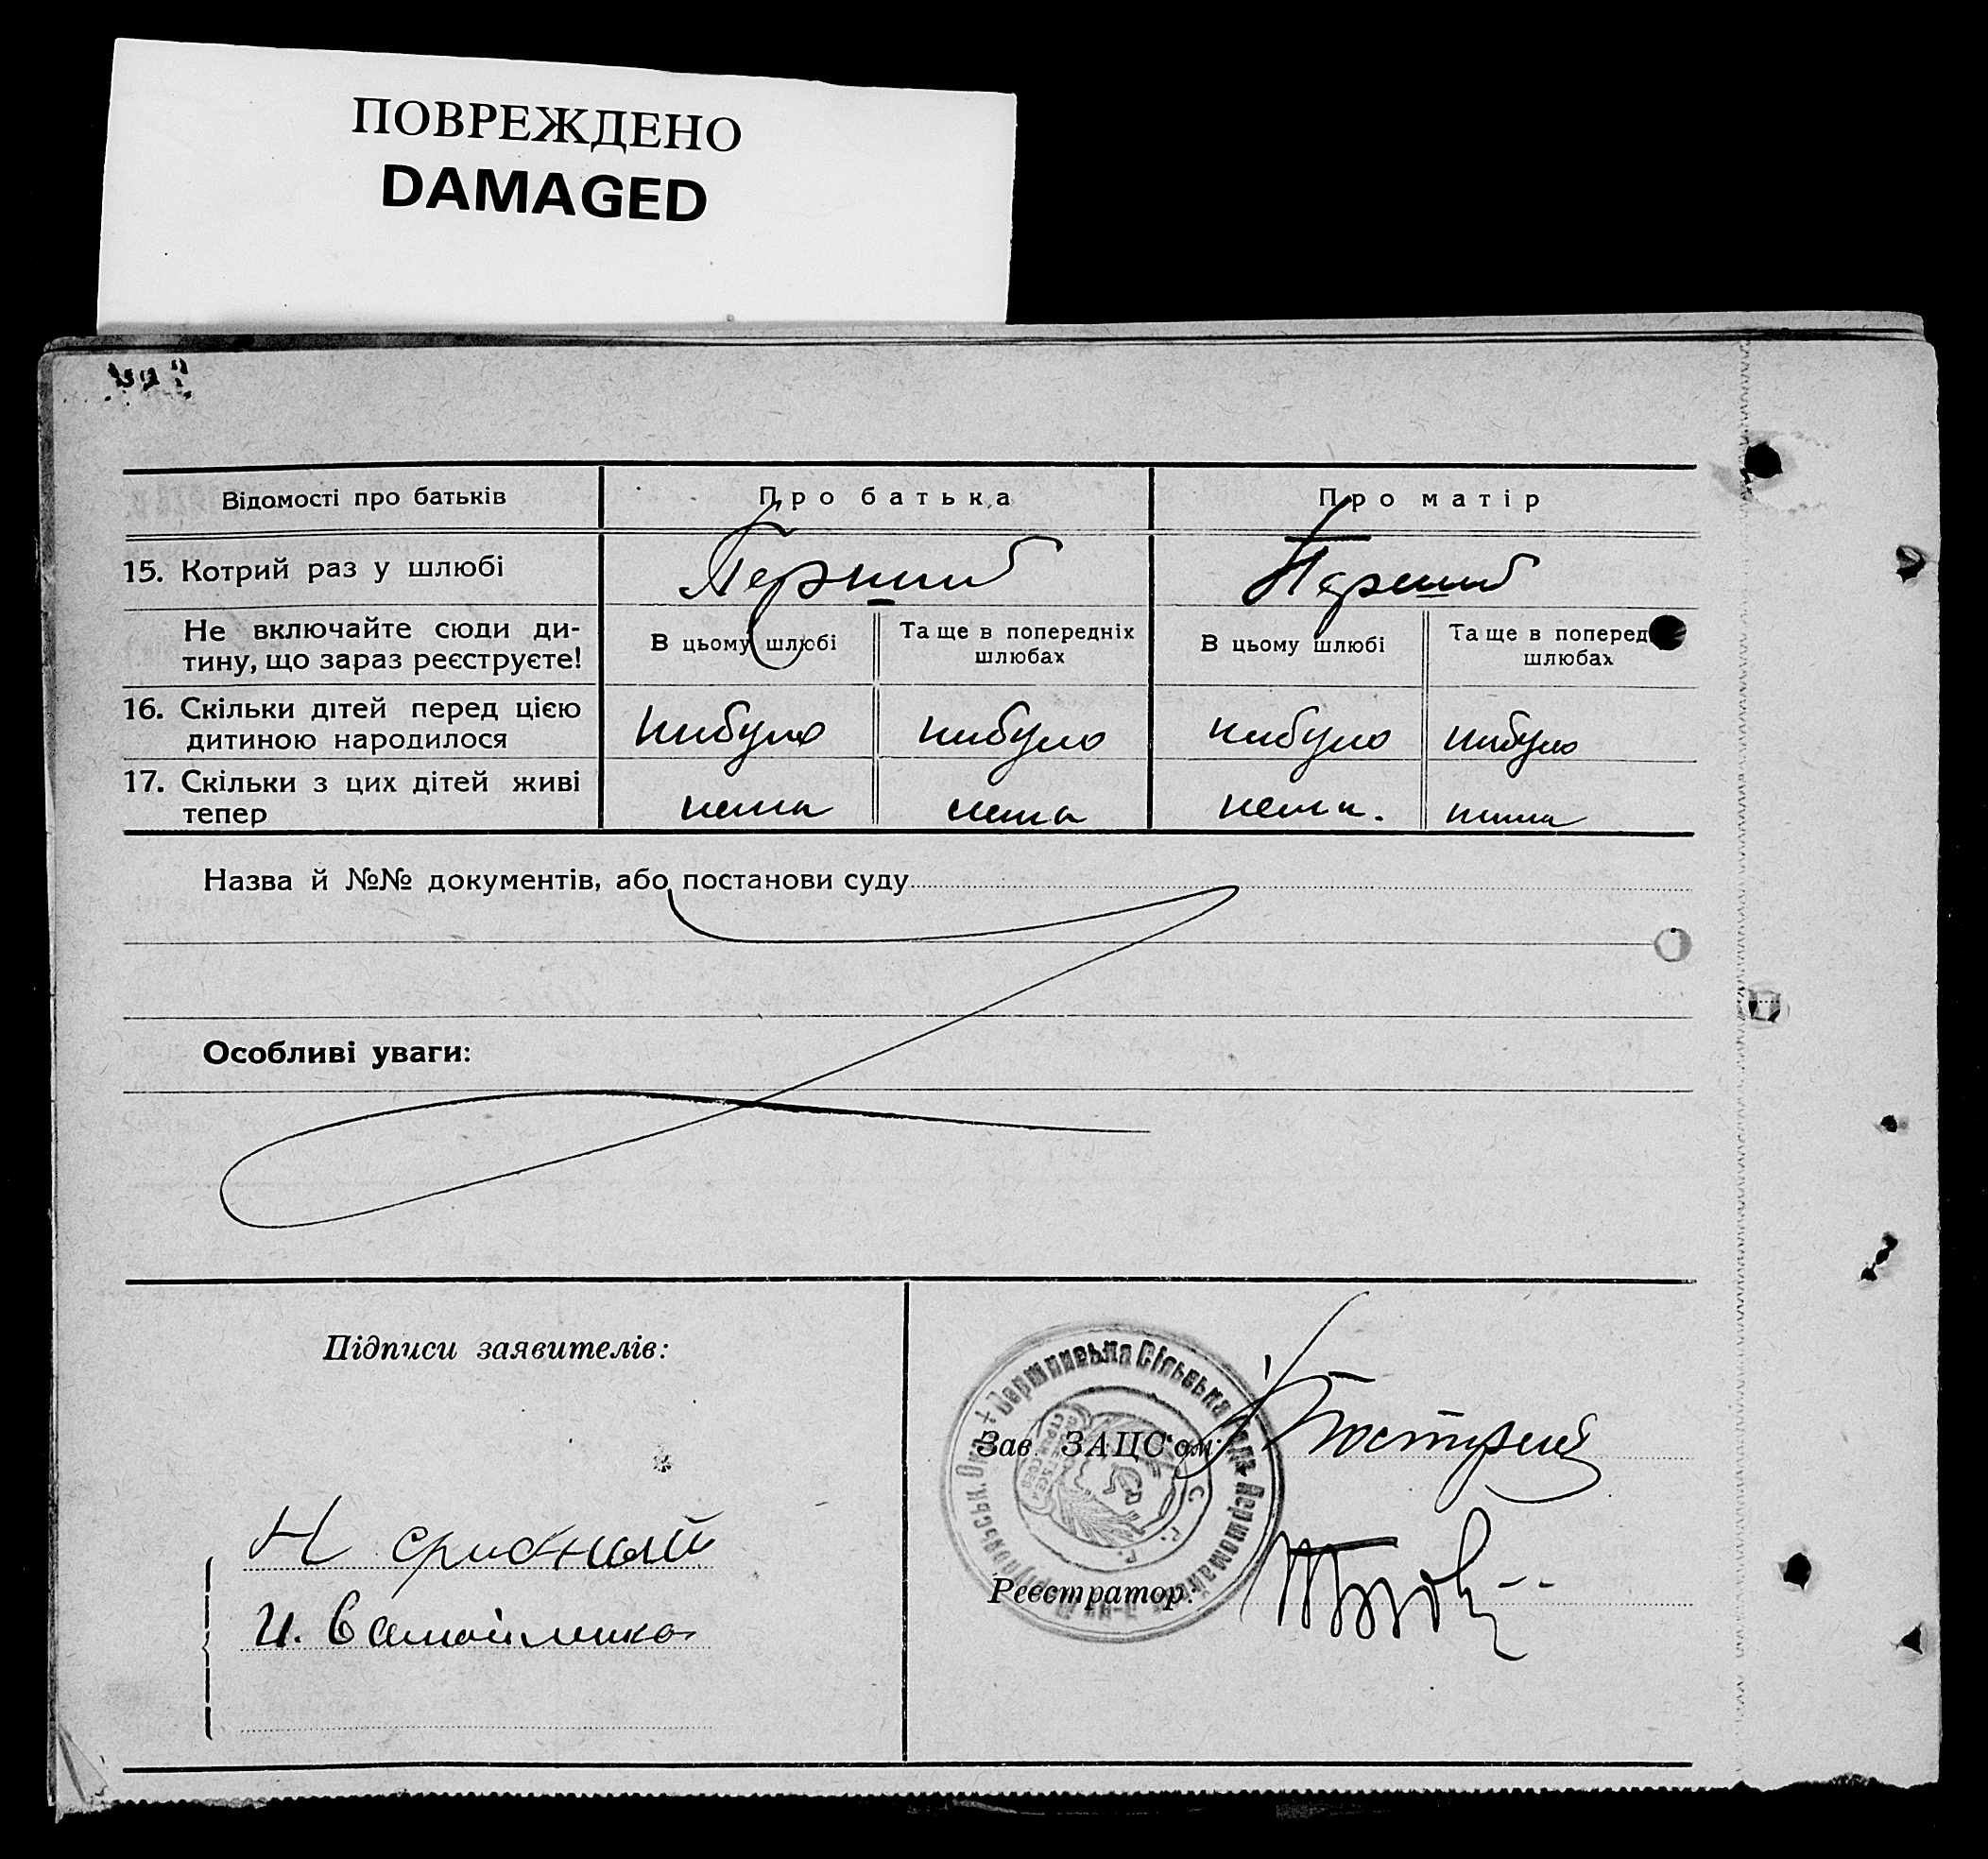 ПОВРЕЖДЕНО
DAMAGED
Відомості про батьків
Про батька
Про матір
15. Котрий раз у шлюбі
Перший
Перший
Не включайте сюди ди-
тину, що зараз реєструєте!
В цьому шлюбі
Та ще в попередніх
шлюбах
В цьому шлюбі
Та ще в поперед
шлюбах
16. Скільки дітей перед цією
дитиною народилося
нибуло
нибуло
нибуло
нибуло
17. Скільки з цих дітей живі
тепер
нема
нема
нема.
нима
Назва й №№ документів, або постанови суду
Особливі уваги:
Підписи заявителів:
Зав. ЗАЦС'ом:
Реєстратор:
Сільська
И. Самойленко